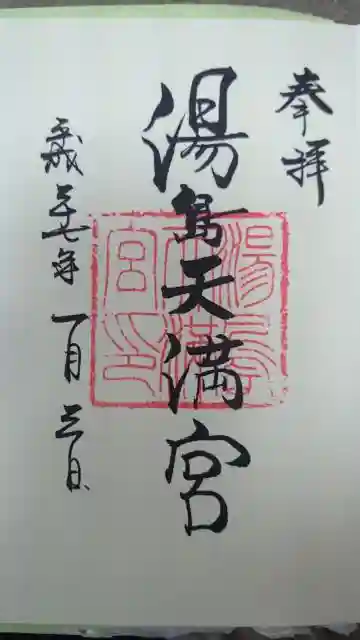 奉拝
湯島天満宮
平成二十七年一月三日
湯島天満宮印